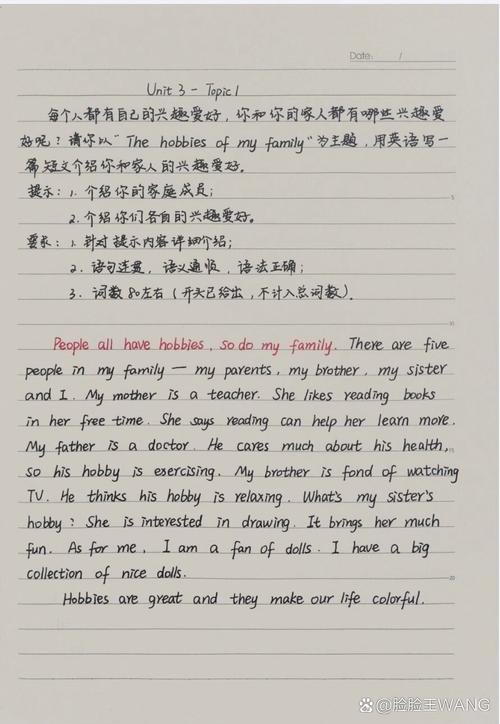 Date: /
Unit 3 - Topic 1
每个人都有自己的兴趣爱好，你和你的家人都有哪些兴趣爱
好呢？请你以"The hobbies of my family"为主题，用英语写一
篇短文介绍你和家人的兴趣爱好。
提示：1. 介绍你的家庭成员；
2. 介绍你们各自的兴趣爱好。
要求：1. 针对提示内容详细介绍；
2. 语句连贯，语义通顺，语法正确；
3. 词数80左右（开头已给出，不计入总词数）。
People all have hobbies, so do my family. There are five
people in my family — my parents, my brother, my sister
and I. My mother is a teacher. She likes reading books
in her free time. She says reading can help her learn more.
My father is a doctor. He cares much about his health,
so his hobby is exercising. My brother is fond of watching
TV. He thinks his hobby is relaxing. What's my sister's
hobby? She is interested in drawing. It brings her much
fun. As for me, I am a fan of dolls. I have a big
collection of nice dolls.
Hobbies are great and they make our life colorful.
5
10
15
20
@脸脸王WANG